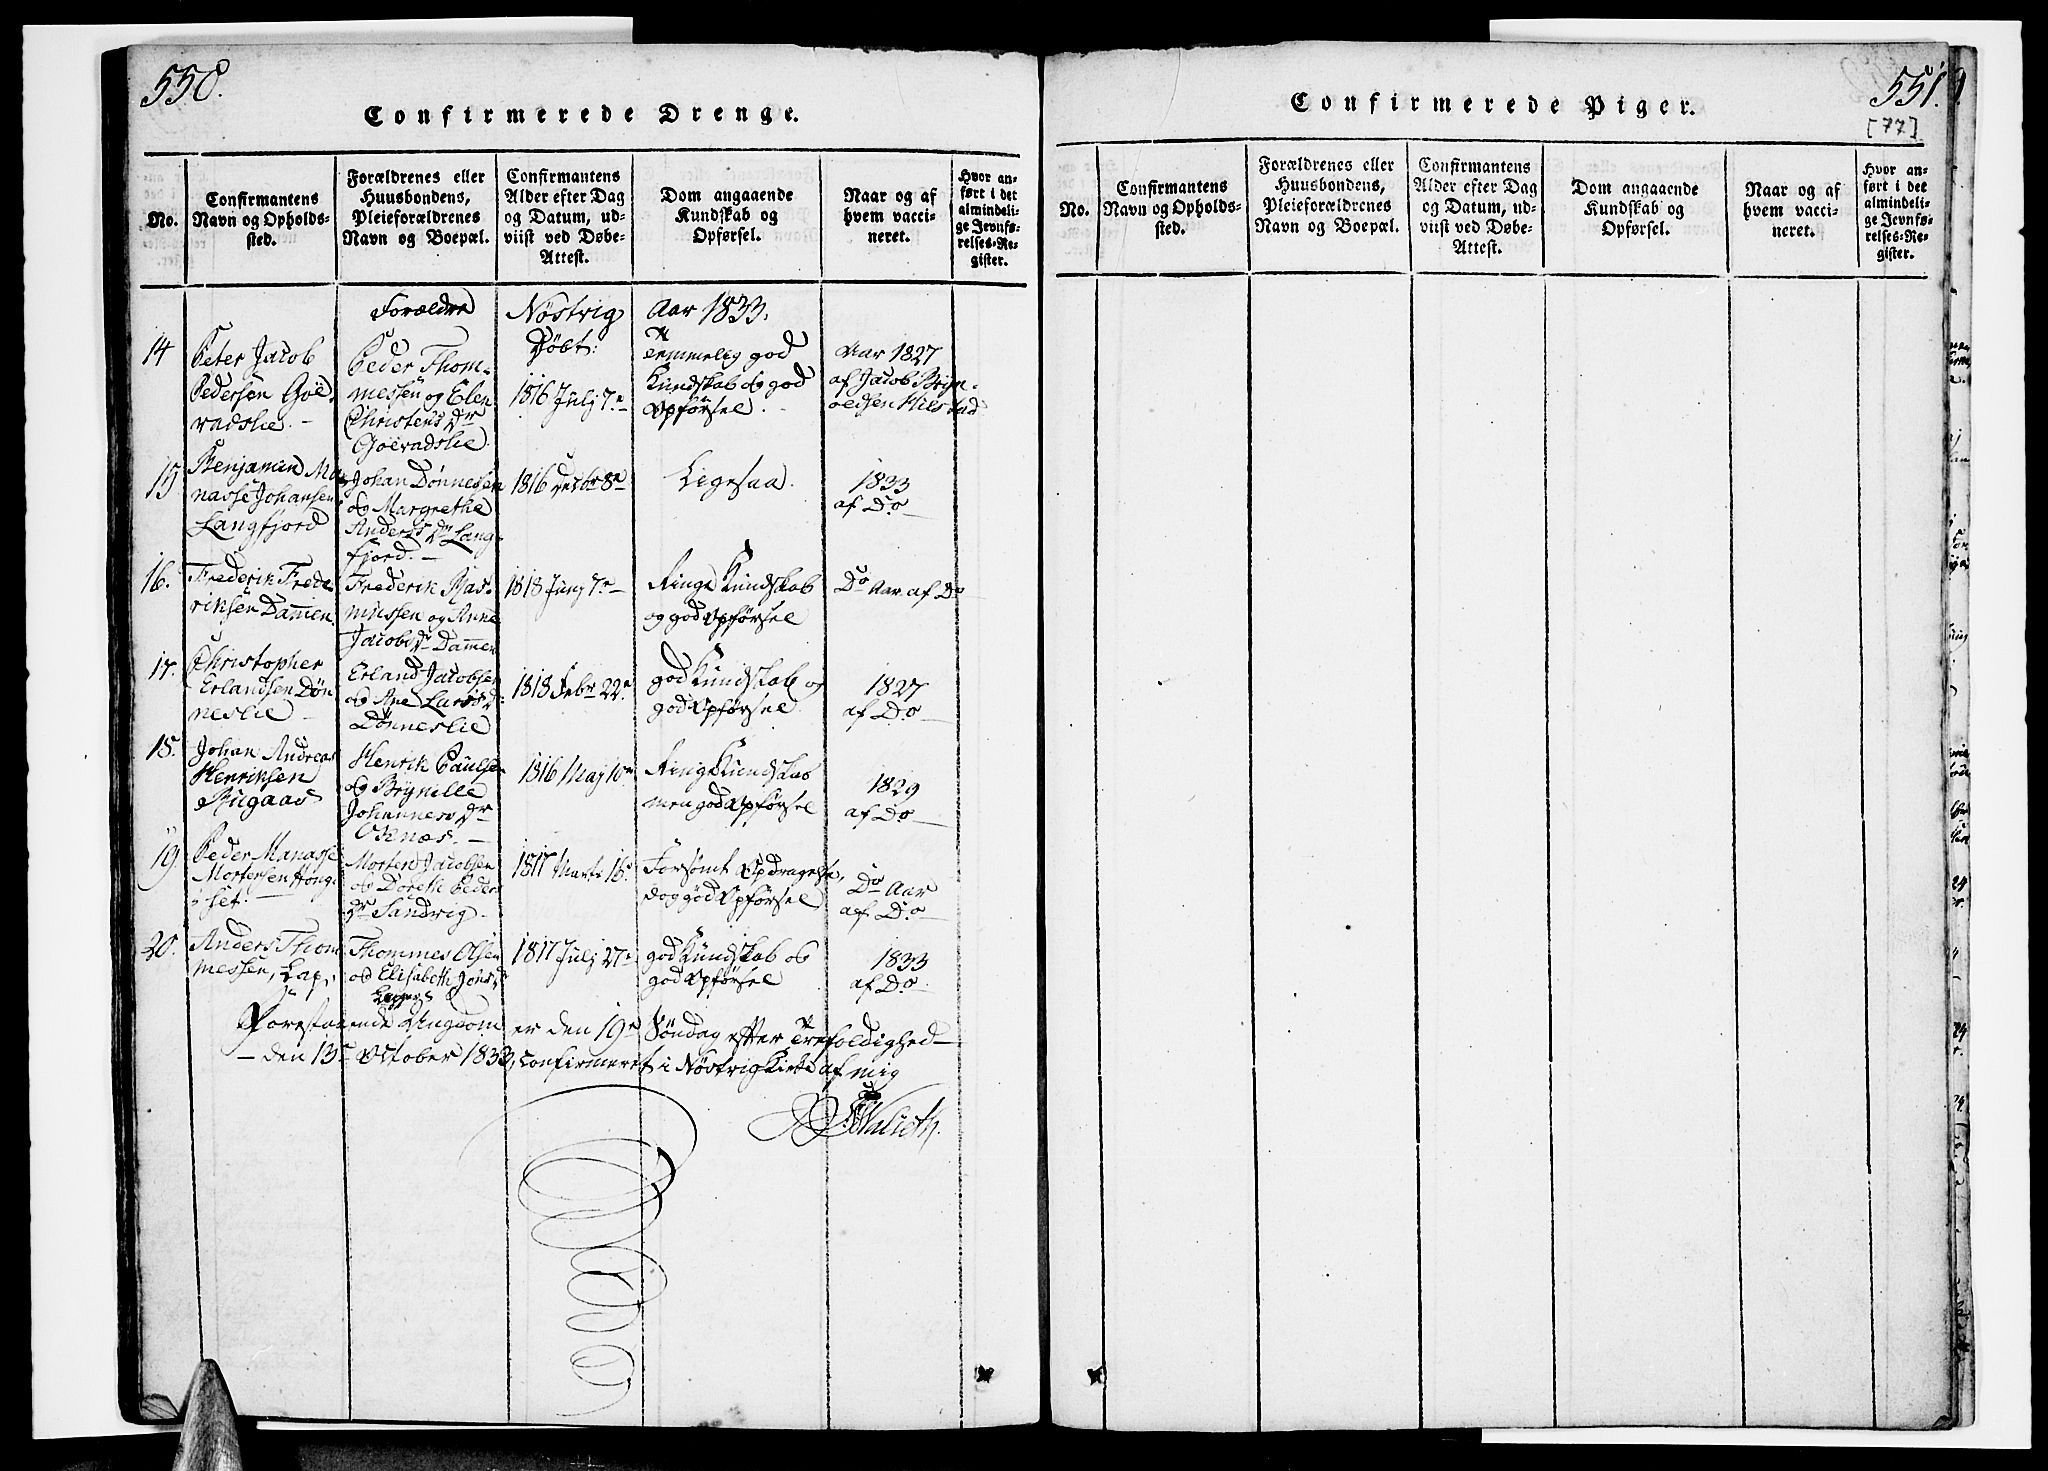 550.
Confirmerede Drenge.
No.
Confirmantens
Navn og Opholds-
sted.
Forældrenes eller
Huusbondens,
Pleieforældrenes
Navn og Boepæl.
Confirmantens
Alder efter Dag
og Datum, ud-
viist ved Døbe-
Attest.
Dom angaaende
Kundskab og
Opførsel.
Naar og af
hvem vacci-
neret.
Hvor an-
ført i det
almindeli-
ge Jevnfø-
relses-Re-
gister.
Forældre
Nöstvig
Aar 1833.
Döbt:
14
Peter Jacob
Pedersen
Peder Thom-
messen og Elen
Christens Dr
1816 July 7e
Temmelig god
Kundskab og god
Opförsel.
Aar 1827
af Jacob
15
Benjamin Ma-
nasse Johansen
Langfjord
Johan Dønnesen
og Margrethe
Anders Dr Lang-
fjord.
1816 Decbr 8e
Ligesaa.
1833
af Do
16.
Frederik Frede-
riksen Dam̄en.
Frederik Ras-
mussen og Anne
Jacobs Dr Dam̄en
1818 Juny 7e
Ringe Kundskab
og god Opförsel
Do Aar af Do
17.
Christopher
Erlandsen Døn
neslie
Erland Jacobsen
og Ane Lars Dr
Dønneslie
1818 Febr 22e
god Kundskab og
god Opförsel.
1827
af Do
18.
Johan Andreas
Henriksen
Rugaas
Henrik Paulsen
og Brynille
Johannes Dr
Oxnæs.
1816 Maj 10e
Ringe Kundskab
men god Opförsel
1829
af Do
19
Peder Manasse
Mortensen
set.
Morten Jacobsen
og Dorethe Peder
Dr Sandvig.
1817 Marts 16e
Forsömt Opdragelse,
dog god Opförsel
Do Aar
af Do
20.
Anders Thom
messen, Lap.
Thommes Olsen
og Elisabeth Jons Dr
Lapper
1817 July 27e
god Kundskab og
god Opförsel
1833
af Do
Forestaaende Ungdom er den 19e Söndag efter Trefoldighed
den 13e October 1833, confirmeret i Nöstvig Kirke af mig
551.
[77]
Confirmerede Piger.
No.
Confirmantens
Navn og Opholds-
sted.
Forældrenes eller
Huusbondens,
Pleieforældrenes
Navn og Boepæl.
Confirmantens
Alder efter Dag
og Datum, ud-
viist ved Døbe-
Attest.
Dom angaaende
Kundskab og
Opførsel.
Naar og af
hvem vacci-
neret.
Hvor an-
ført i det
almindeli-
ge Jevnfø-
relses-Re-
gister.